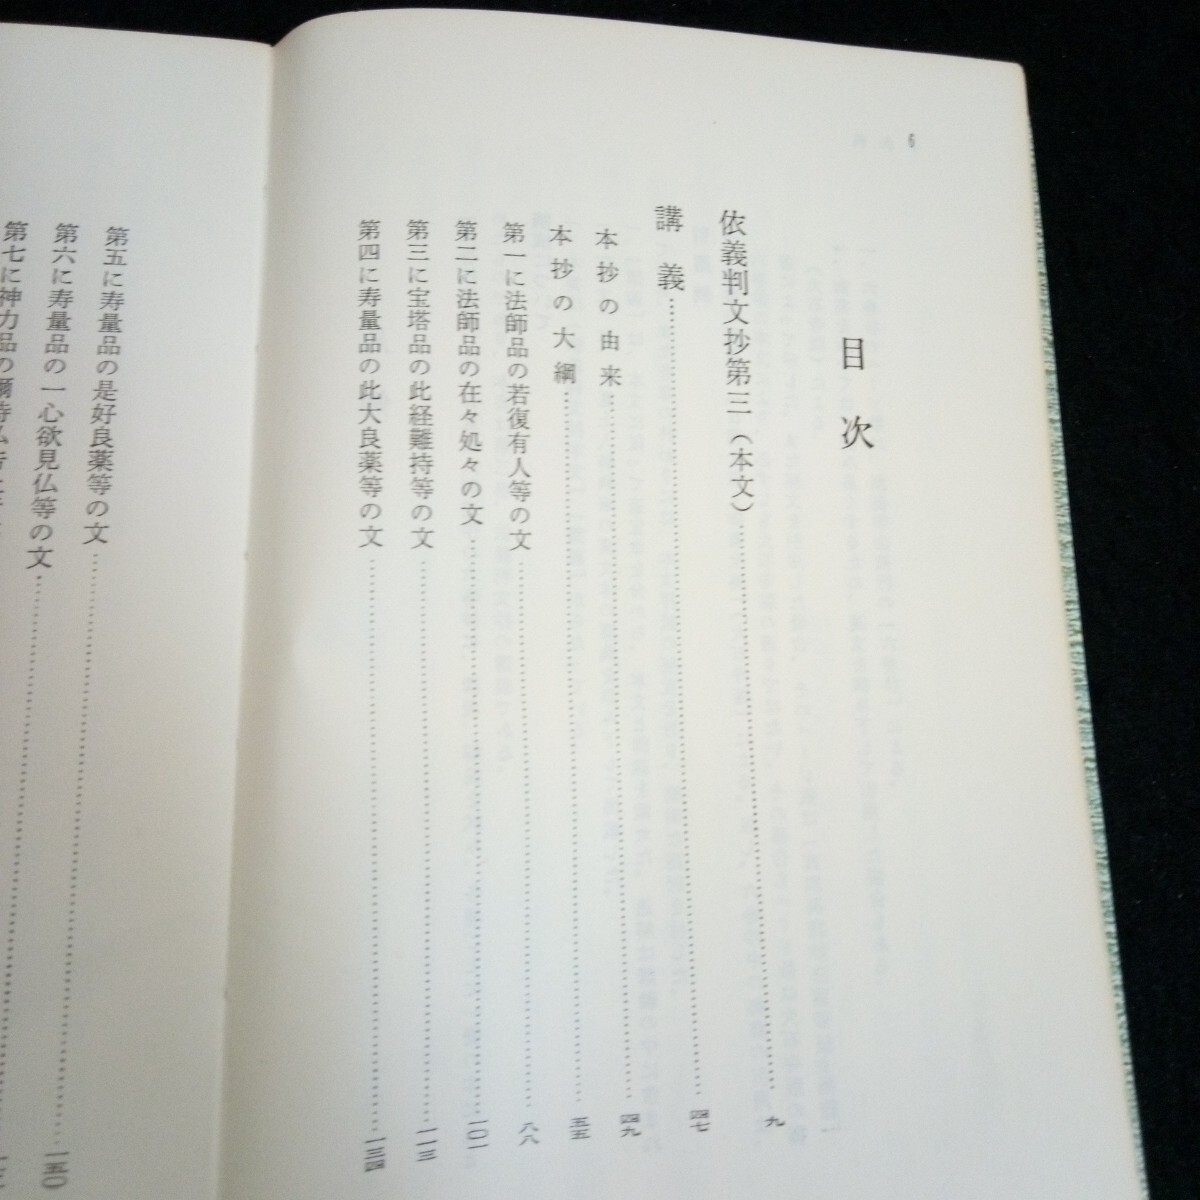 6
目次
依義判文抄第三（本文）……九
講義……四七
本抄の由来……四九
本抄の大綱……五五
第一に法師品の若復有人等の文……八八
第二に法師品の在々処々の文……一〇一
第三に宝塔品の此経難持等の文……一一三
第四に寿量品の此大良薬等の文……一三四
第五に寿量品の是好良薬等の文……
第六に寿量品の一心欲見仏等の文……一五〇
第七に神力品の爾時仏告上